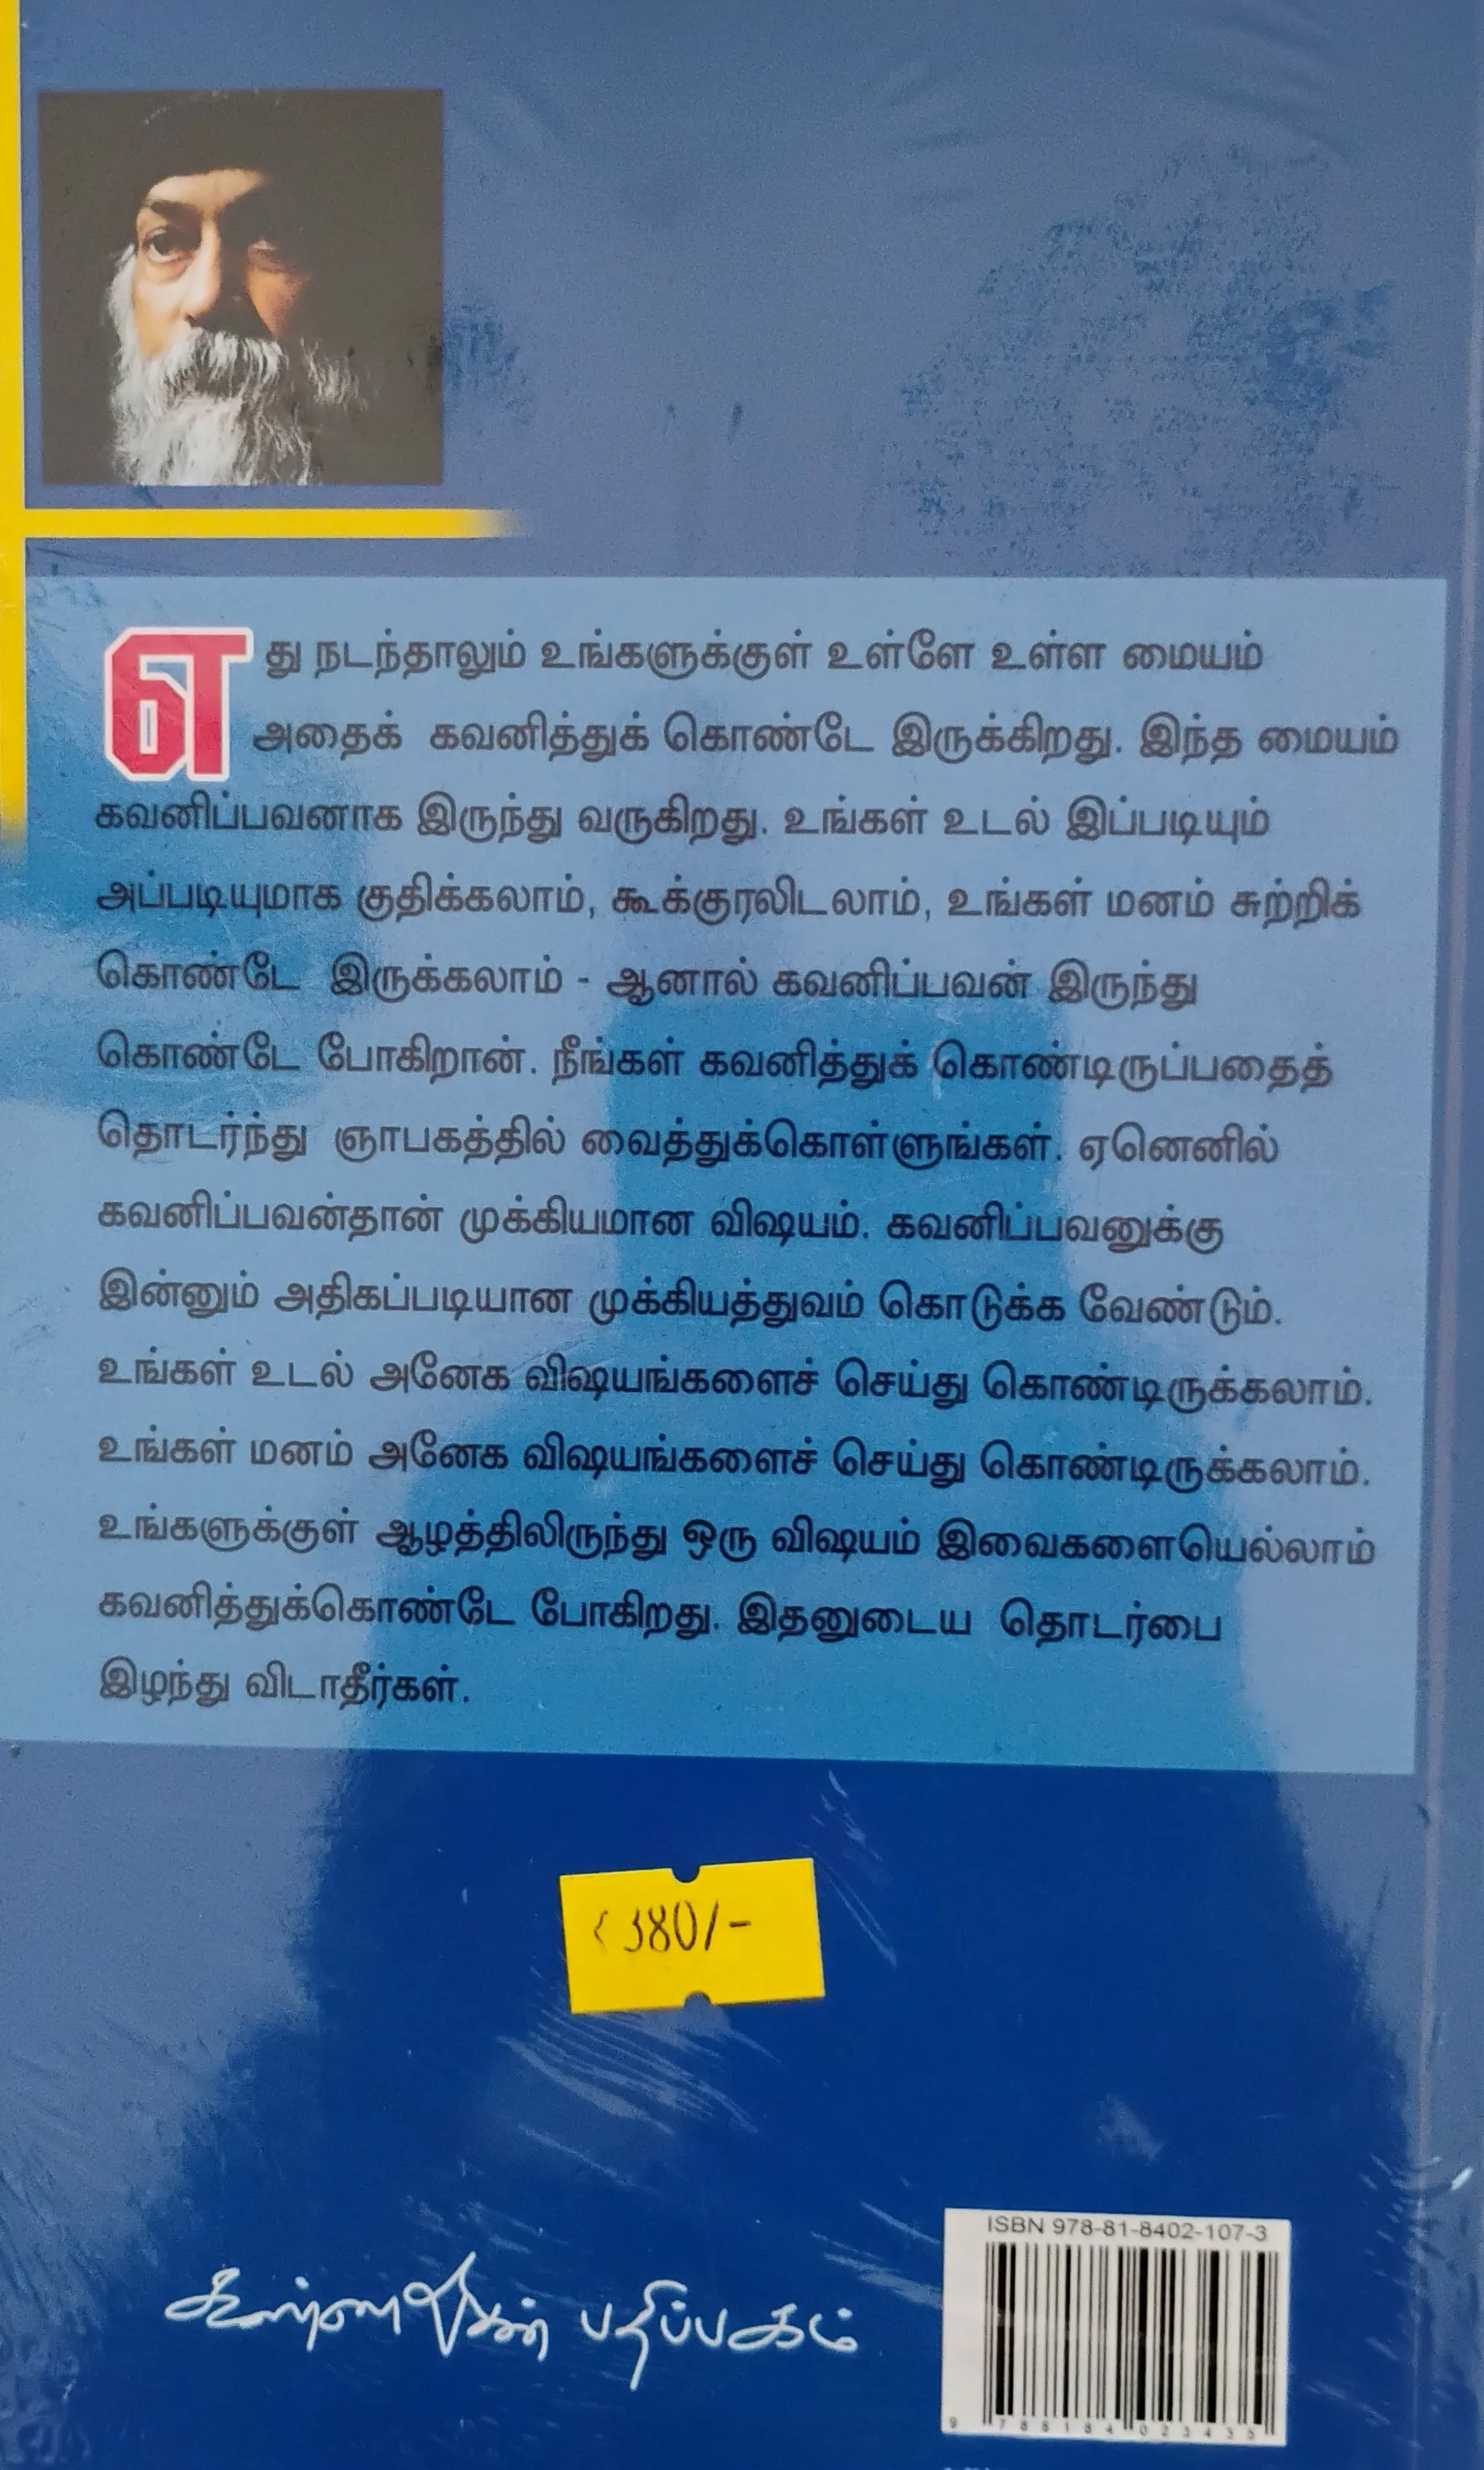 எது நடந்தாலும் உங்களுக்குள் உள்ளே உள்ள மையம்
அதைக் கவனித்துக் கொண்டே இருக்கிறது. இந்த மையம்
கவனிப்பவனாக இருந்து வருகிறது. உங்கள் உடல் இப்படியும்
அப்படியுமாக குதிக்கலாம், கூக்குரலிடலாம், உங்கள் மனம் சுற்றிக்
கொண்டே இருக்கலாம் - ஆனால் கவனிப்பவன் இருந்து
கொண்டே போகிறான். நீங்கள் கவனித்துக் கொண்டிருப்பதைத்
தொடர்ந்து ஞாபகத்தில் வைத்துக்கொள்ளுங்கள். ஏனெனில்
கவனிப்பவன்தான் முக்கியமான விஷயம். கவனிப்பவனுக்கு
இன்னும் அதிகப்படியான முக்கியத்துவம் கொடுக்க வேண்டும்.
உங்கள் உடல் அனேக விஷயங்களைச் செய்து கொண்டிருக்கலாம்.
உங்கள் மனம் அனேக விஷயங்களைச் செய்து கொண்டிருக்கலாம்.
உங்களுக்குள் ஆழத்திலிருந்து ஒரு விஷயம் இவைகளையெல்லாம்
கவனித்துக்கொண்டே போகிறது. இதனுடைய தொடர்பை
இழந்து விடாதீர்கள்.
₹380/-
கண்ணதாசன் பதிப்பகம்
ISBN 978-81-8402-107-3
9 788184 023435